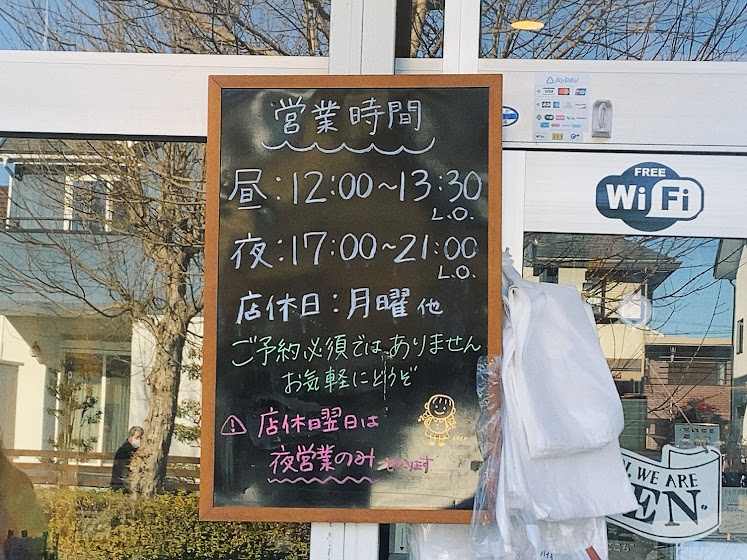 営業時間
昼:12:00~13:30
L.O.
夜:17:00~21:00
L.O.
店休日:月曜他
ご予約必須では、ありません
お気軽にどうぞ
⚠店休日翌日は
夜営業のみ なります
AirPAY
VISA
FREE
WiFi
WE ARE
EN.